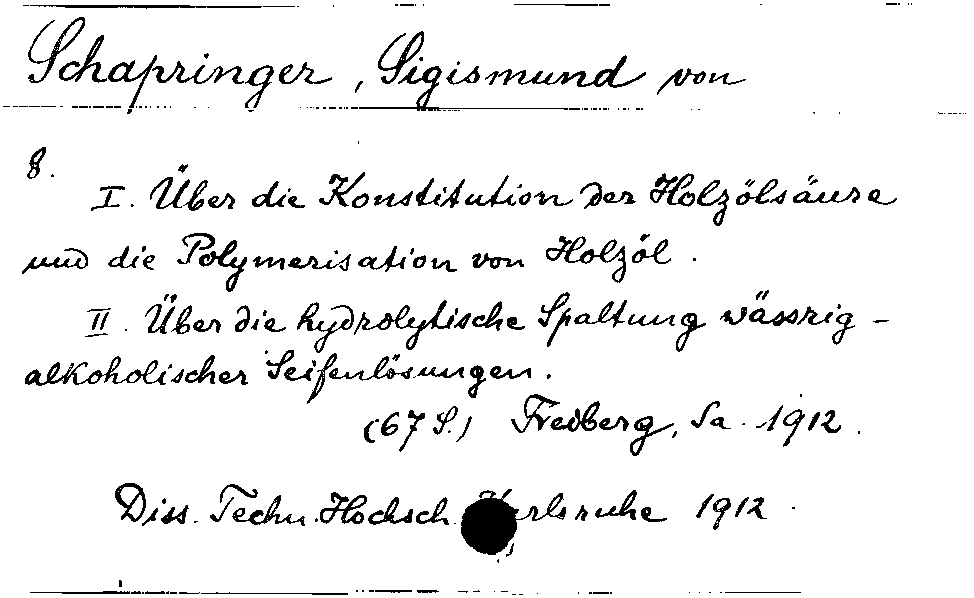 Schapringer, Sigismund von
8.
I. Über die Konstitution der Holzölsäure
und die Polymerisation von Holzöl.
II. Über die hydrolytische Spaltung wässrig-
alkoholischer Seifenlösungen.
(67 S.) Freiberg, Sa. 1912.
Diss. Techn. Hochsch. Karlsruhe 1912.